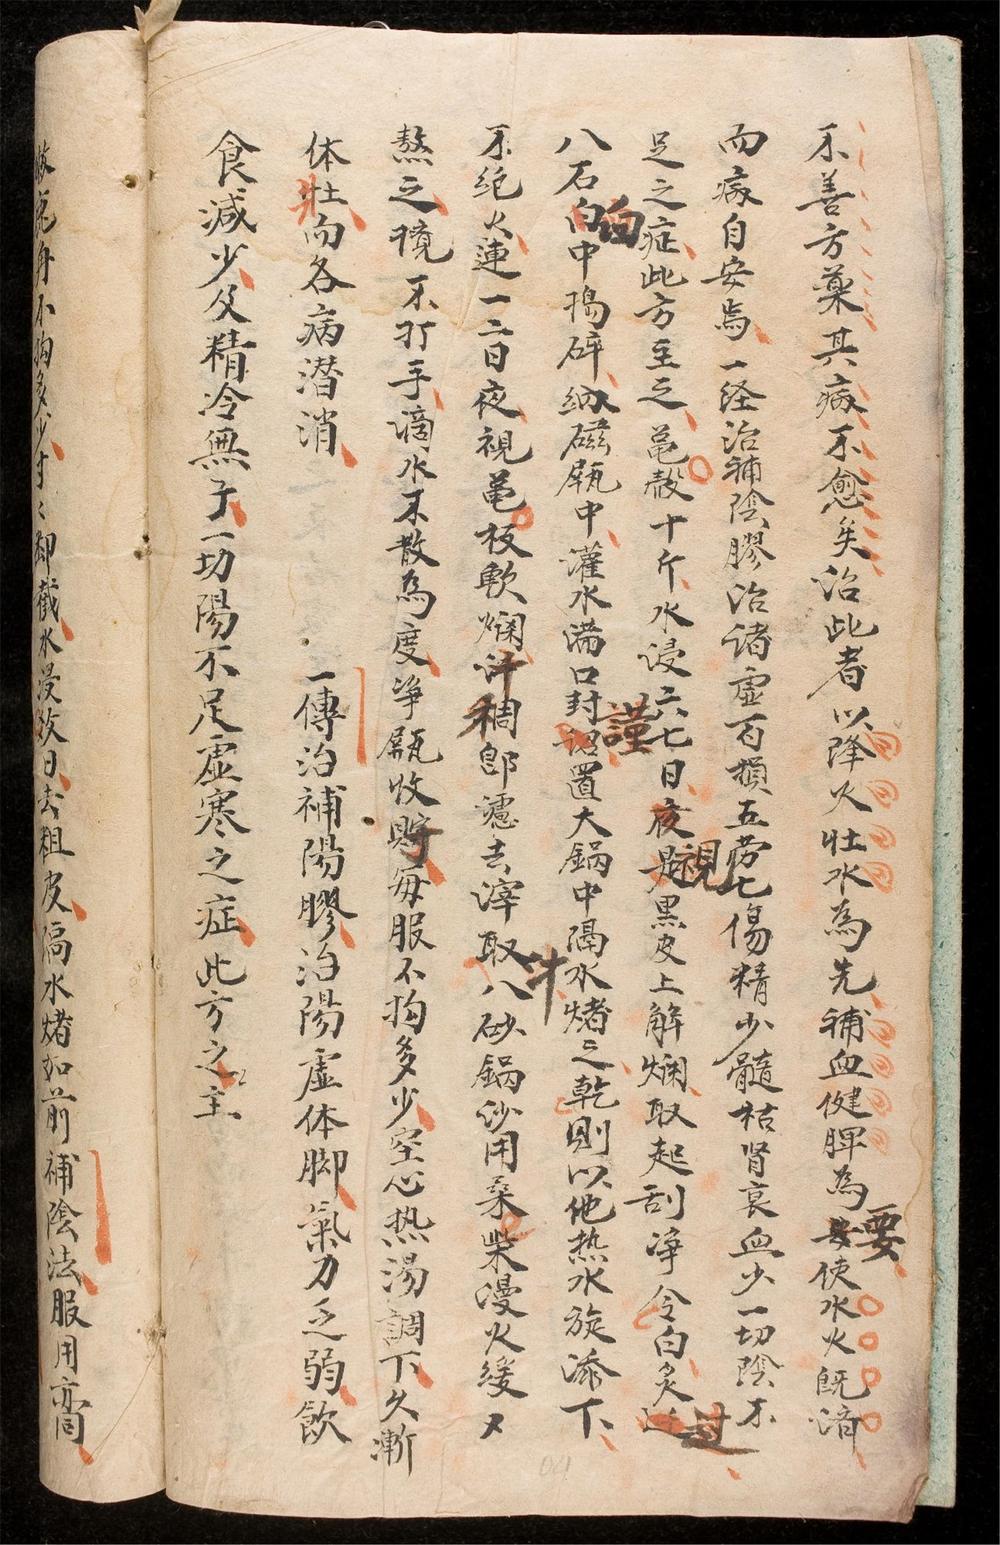 不善方藥其病不愈矣治此者以降火壯水為先補血健脾為要使水火既済
而病自安焉一経治補陰膠治诸虚百損五劳七傷精少髓枯肾衰血少一切陰不
足之症此方主之亀殼十斤水浸六七日夜視黒皮上解爛取起刮净令白炙过
八石臼中搗碎納磁瓶中灌水滿口封謹置大鍋中隔水煮之乾則以他热水旋添下
不絶火連一二日夜視亀板軟爛汁稠即濾去滓取汁八砂鍋沙用桑柴漫火緩〻
熬之稠不打手滴水不散為度净瓶收貯每服不拘多少空心热湯調下久漸
体壯而各病潜消
一傳治補陽膠治陽虚体脚氣力乏弱飲
食減少及精冷無子一切陽不足虚寒之症此方之主
身不拘多少寸〻卸截水浸数日去粗皮隔水煮如前補陰法服用